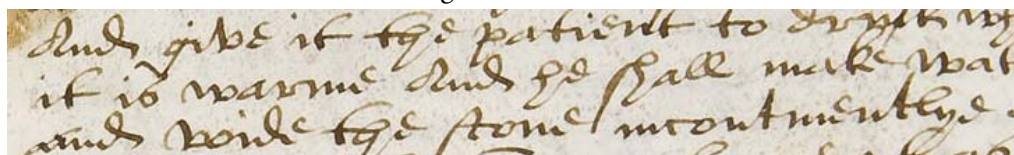 And give it the patient to drynk wh
it is warme And he shall make wat
and voide the stone incontinentlye